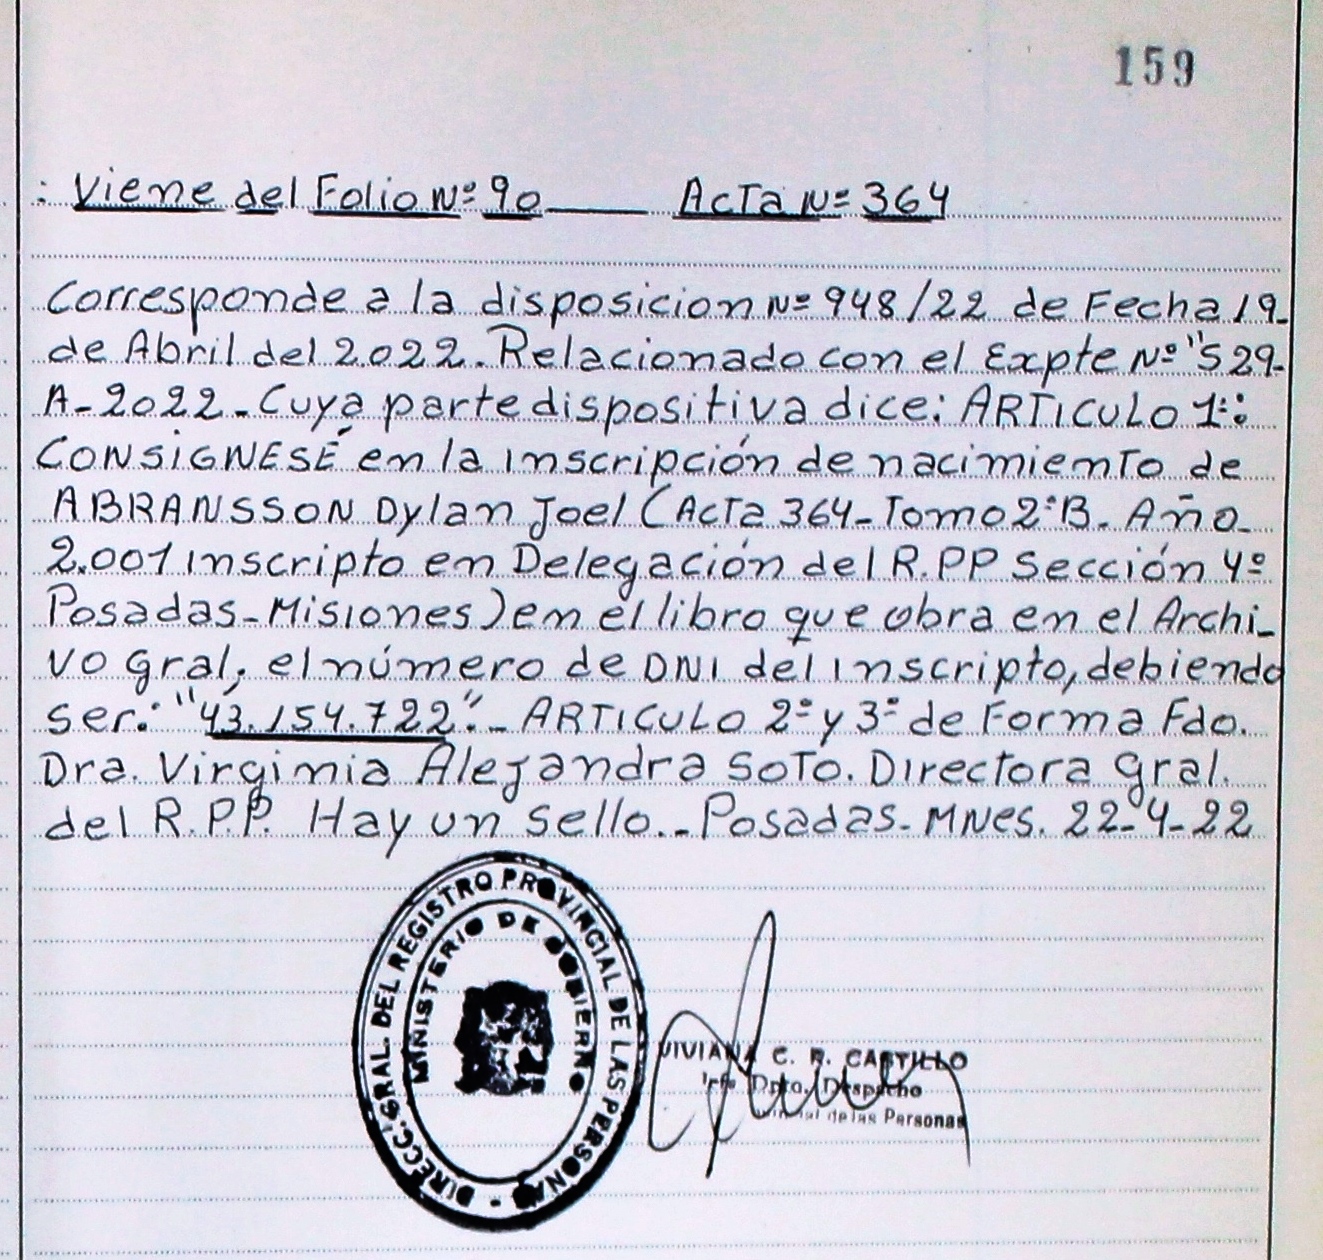 159
: Viene del Folio Nº 90 ____ Acta Nº 364
Corresponde a la disposicion Nº 948/22 de Fecha 19-
de Abril del 2.022. Relacionado con el Expte Nº "529-
A-2022-Cuya parte dispositiva dice: ARTICULO 1º:
CONSIGNESÉ en la inscripción de nacimiento de
ABRANSSON Dylan Joel (Acta 364-Tomo 2ºB. Año-
2.001 inscripto en Delegación del R.PP Sección 4º
Posadas-Misiones) en el libro que obra en el Archi-
vo gral; el número de DNI del inscripto, debiendo
ser: "43.154.722".- ARTICULO 2º y 3º de Forma Fdo.
Dra. Virginia Alejandra SOTO. Directora gral.
del R.P.P. Hay un sello.-Posadas-MNes. 22-4-22
DIRECC. GRAL. DEL REGISTRO PROVINCIAL DE LAS PERSONAS -
MINISTERIO DE GOBIERNO
VIVIANA C. R. CASTILLO
Jefe Dpto. Despacho
de las Personas